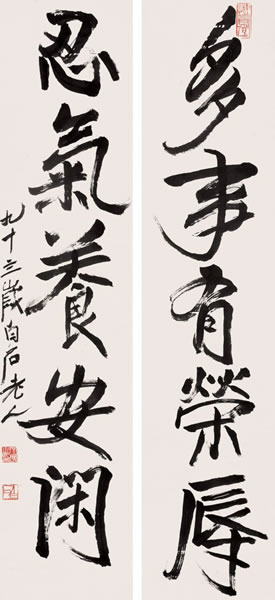 多事有榮辱
忍氣養安闲
九十三歲白石老人